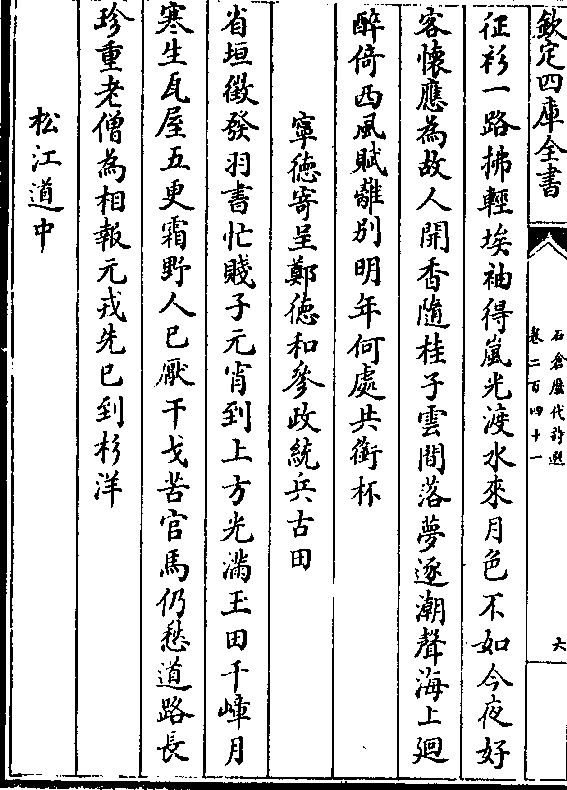 欽定四庫全書
石倉歷代詩選
卷二百四十一
六
征衫一路拂輕埃袖得嵐光渡水來月色不如今夜好
客懷應為故人開香隨桂子雲間落夢逐潮聲海上廻
醉倚西風賦離別明年何處共銜杯
寧德寄呈鄭德和參政統兵古田
省垣徵發羽書忙賤子元宵到上方光滿玉田千嶂月
寒生瓦屋五更霜野人已厭干戈苦官馬仍愁道路長
珍重老僧為相報元戎先已到杉洋
松江道中